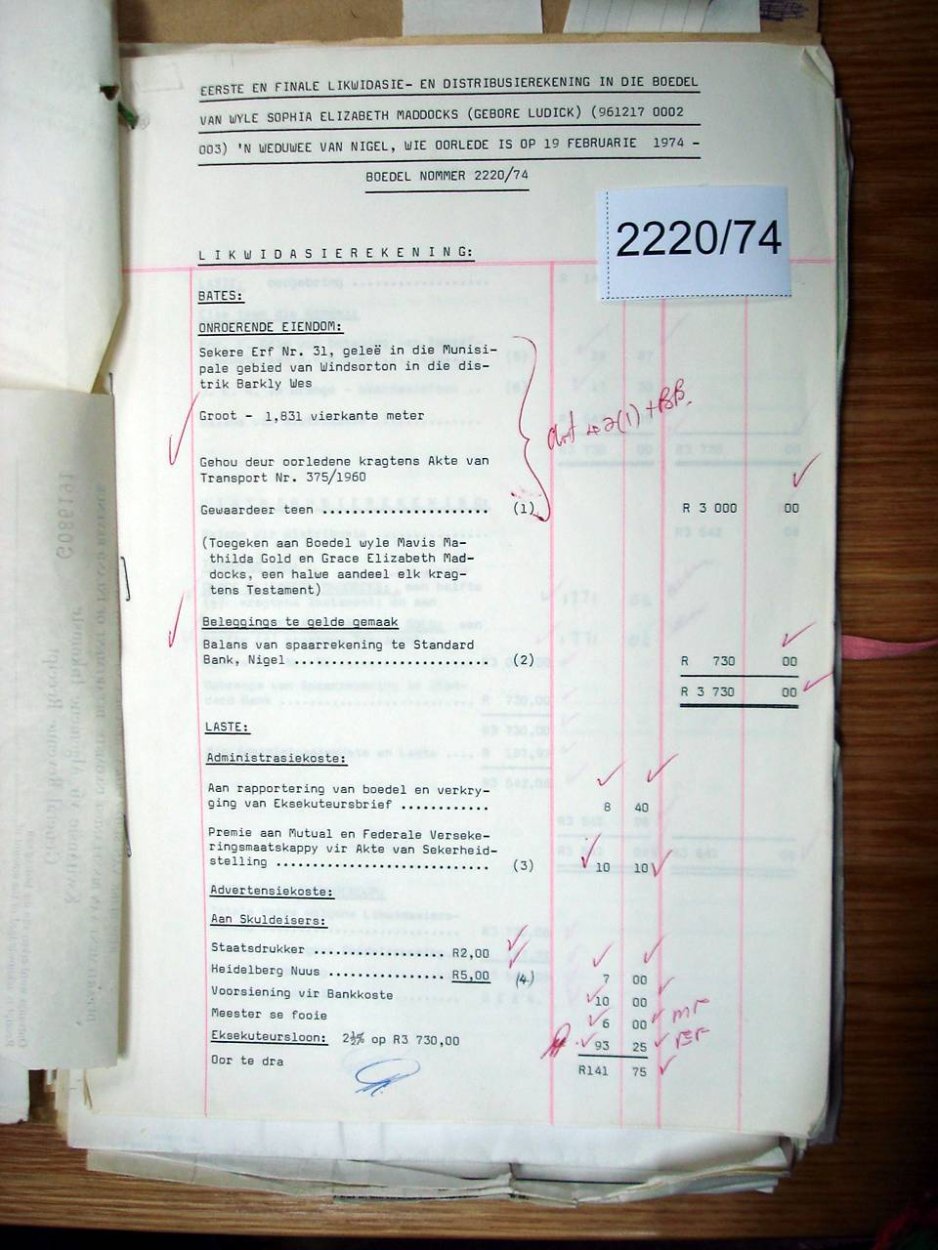 EERSTE EN FINALE LIKWIDASIE- EN DISTRIBUSIEREKENING IN DIE BOEDEL
VAN WYLE SOPHIA ELIZABETH MADDOCKS (GEBORE LUDICK) (961217 0002
003) 'N WEDUWEE VAN NIGEL, WIE OORLEDE IS OP 19 FEBRUARIE 1974 -
BOEDEL NOMMER 2220/74
2220/74
LIKWIDASIEREKENING:
BATES:
ONROERENDE EIENDOM:
Sekere Erf Nr. 31, geleë in die Munisi-
pale gebied van Windsorton in die dis-
trik Barkly Wes
Groot - 1,831 vierkante meter
Gehou deur oorledene kragtens Akte van
Transport Nr. 375/1960
Gewaardeer teen ...................... (1) R 3 000 00
(Toegeken aan Boedel wyle Mavis Ma-
thilda Gold en Grace Elizabeth Mad-
docks, een halwe aandeel elk krag-
tens Testament)
Beleggings te gelde gemaak
Balans van spaarrekening te Standard
Bank, Nigel ......................... (2) R 730 00
R 3 730 00
LASTE:
Administrasiekoste:
Aan rapportering van boedel en verkry-
ging van Eksekuteursbrief ............ 8 40
Premie aan Mutual en Federale Verseke-
ringsmaatskappy vir Akte van Sekerheid-
stelling ............................. (3) 10 10
Advertensiekoste:
Aan Skuldeisers:
Staatsdrukker .................. R2,00
Heidelberg Nuus ............... R5,00 (4) 7 00
Voorsiening vir Bankkoste 10 00
Meester se fooie 6 00
Eksekuteursloon: 2½% op R3 730,00 93 25
Oor te dra R141 75